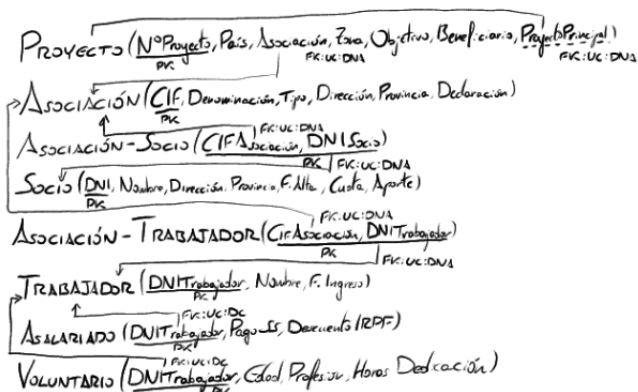 PROYECTO (NºProyecto, País, Asociación, Zona, Objetivo, Beneficiario, ProyectoPrincipal)
PK FK:UC:DNA FK:UC:DNA
ASOCIACIÓN (CIF, Denominación, Tipo, Dirección, Provincia, Declaración)
PK FK:UC:DNA
ASOCIACIÓN-SOCIO (CIFAsociación, DNISocio)
PK FK:UC:DNA
SOCIO (DNI, Nombre, Dirección, Provincia, F.Alta, Cuota, Aporte)
PK FK:UC:DNA
ASOCIACIÓN-TRABAJADOR (CifAsociación, DNITrabajador)
PK FK:UC:DNA
TRABAJADOR (DNITrabajador, Nombre, F. Ingreso)
PK FK:UC:DC
ASALARIADO (DNITrabajador, Pago SS, Descuento IRPF)
PK FK:UC:DC
VOLUNTARIO (DNITrabajador, Edad, Profesion, Horas Dedicación)
PK